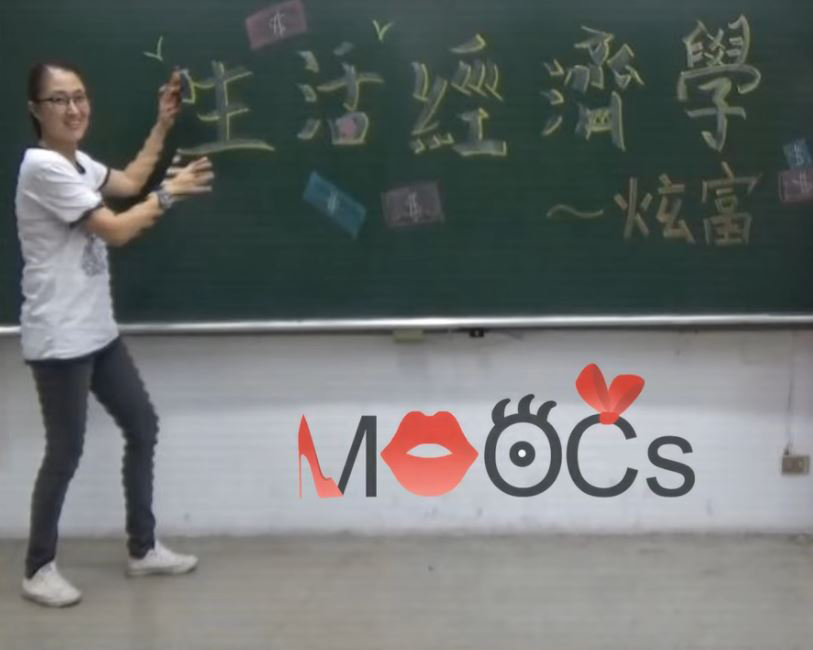 生活經濟學
～炫富
MOOCs